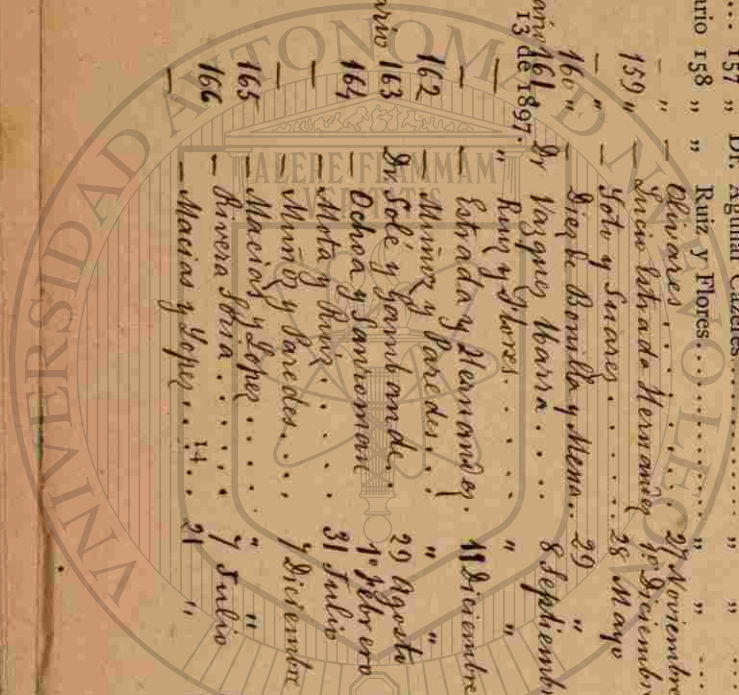 ... 157 ,, Dr. Aguilar Cázeres.................. ,,
ario 158 ,, Ruiz y Flores.................. ,, ,, ....
— " — Olivares . . . . . . . 27 Noviembr
159 " — Lucio Estrada Hernandez 1º Diciembr
— " — Soto y Suares . . . . . . . 28 Mayo
160 " — Diez de Bonilla y Mena.. 29 "
ario 161. Dr Vazquez Ybarra . . . . 8 Septiemb
13 de 1897.
— " Ruiz y Flores. . . . . . " "
— — Estrada y Hernandez. 11 Diciembre
162 — Muñoz y Paredes. . . " "
ario 163 Dr Solé y Gambande. . 29 Agosto
164 — Ochoa y Sanroman 1º febrero
— — Mota y Ruiz . . . . . . 31 Julio
— — Muñoz y Paredes. . . . 7 Diciembre
165 — Macias y Lopez . . . . . " "
166 — Rivera Soria . . . . . . 7 Julio
— — Macias y Lopez . . . 14 . . 21 "
UNIVERSIDAD AUTONOMA DE NUEVO LEON
ALERE FLAMMAM
VERITATIS